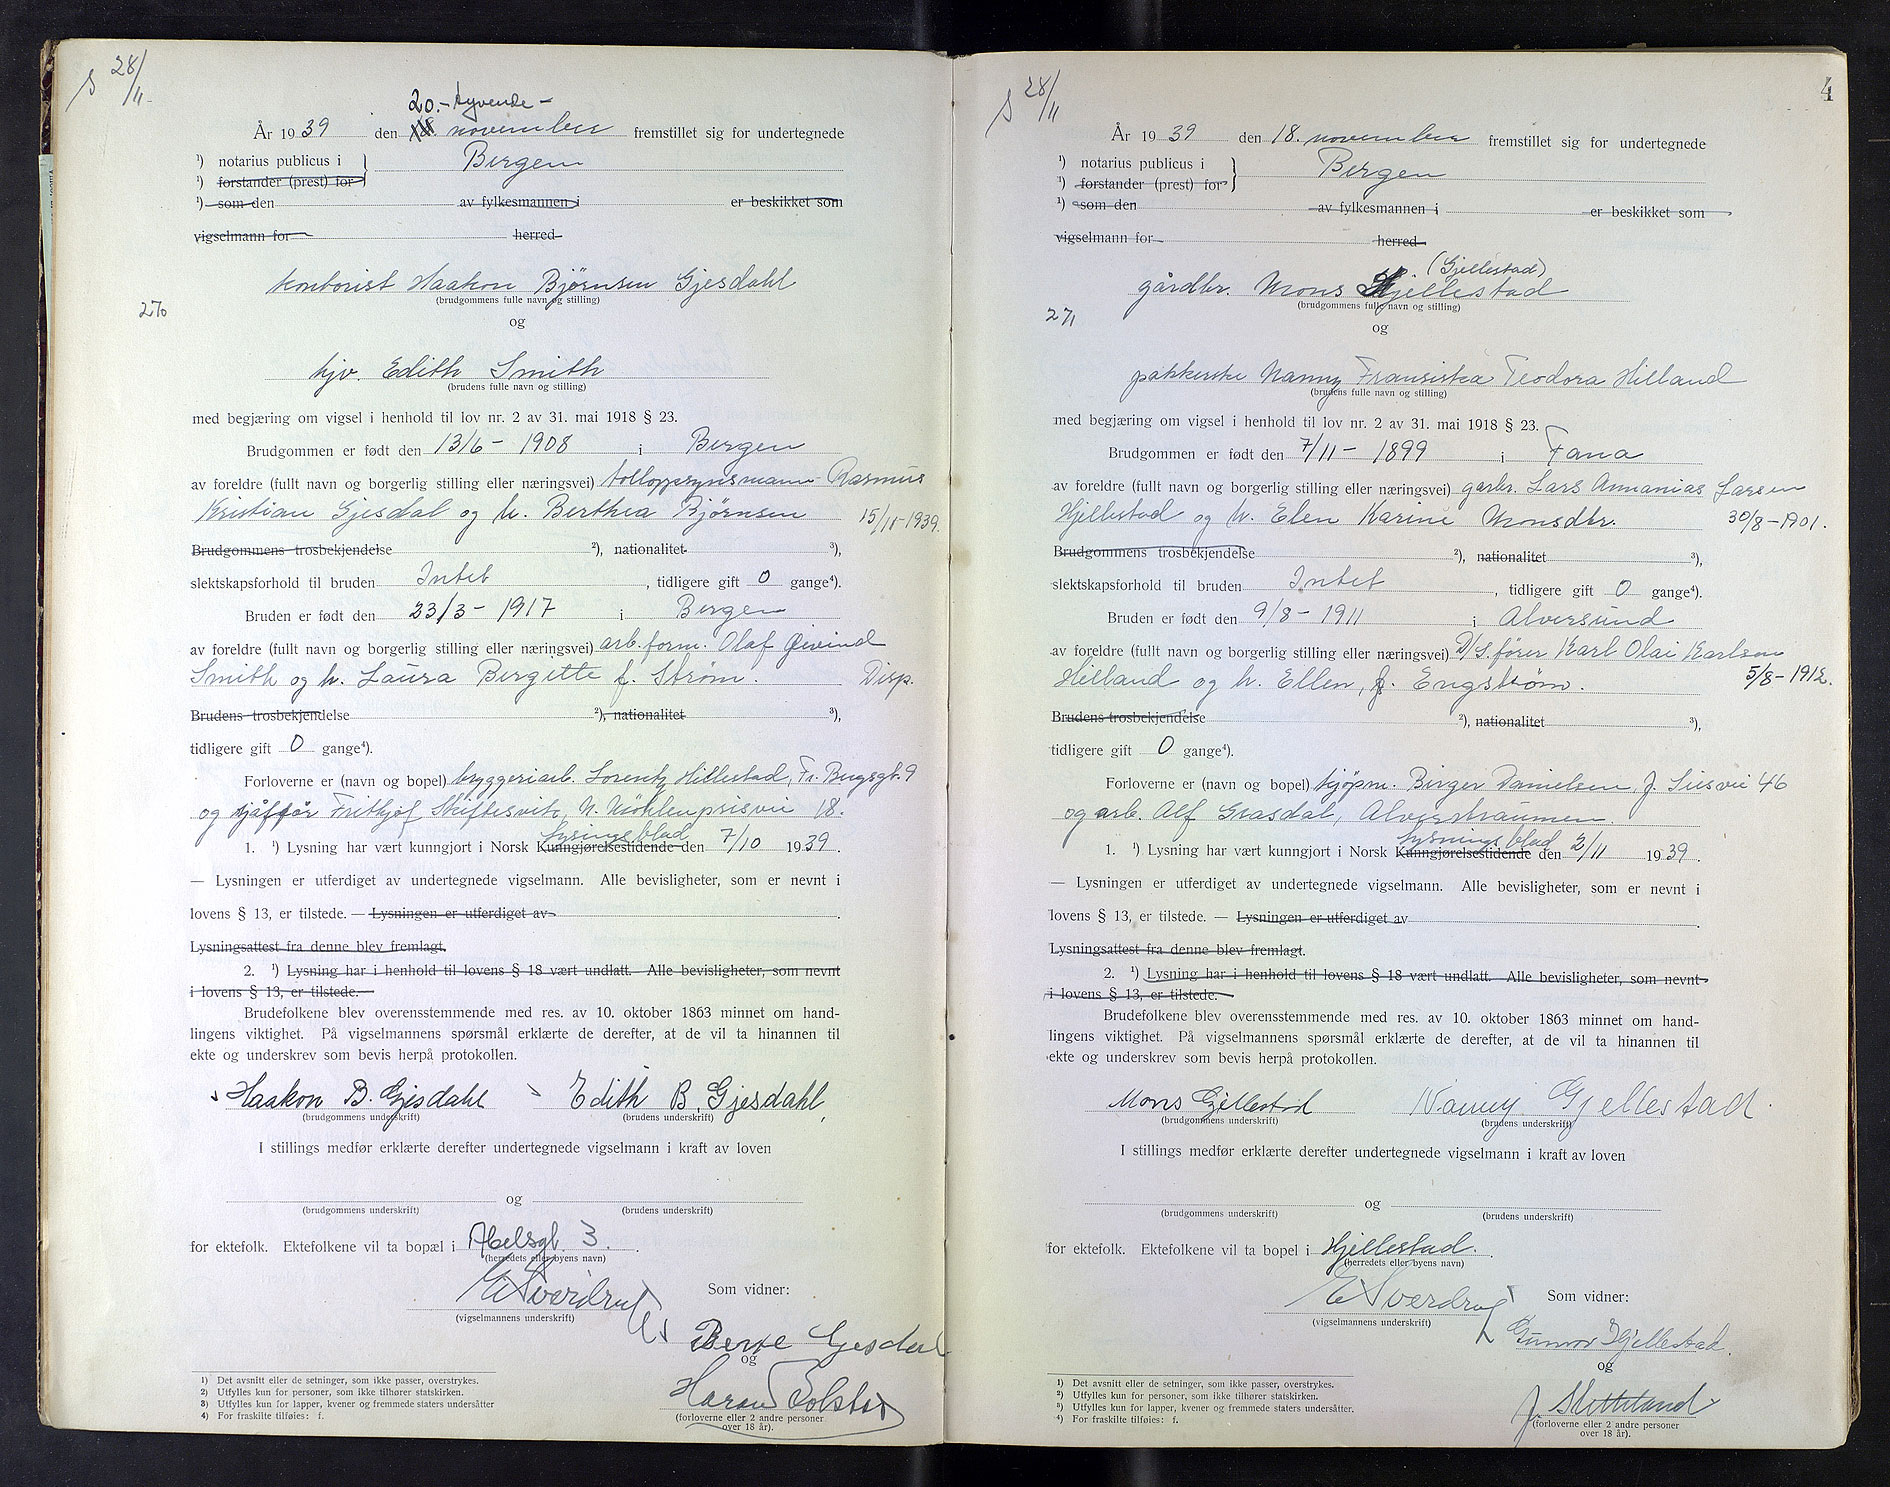 28/11
20. - tyvende -
År 1939 den november fremstillet sig for undertegnede
¹) notarius publicus i Bergen
¹) forstander (prest) for
¹) som den av fylkesmannen i er beskikket som
vigselmann for herred
kontorist Haakon Bjørnsen Gjesdahl
(brudgommens fulle navn og stilling)
270
og
hjv. Edith Smith
(brudens fulle navn og stilling)
med begjæring om vigsel i henhold til lov nr. 2 av 31. mai 1918 § 23.
Brudgommen er født den 13/6 - 1908 i Bergen
av foreldre (fullt navn og borgerlig stilling eller næringsvei) tolloppsynsmann Rasmus
Kristian Gjesdal og h. Berthea Bjørnsen 15/11-1939.
Brudgommens trosbekjendelse ²), nationalitet ³),
slektskapsforhold til bruden Intet, tidligere gift 0 gange⁴).
Bruden er født den 23/3 - 1917 i Bergen
av foreldre (fullt navn og borgerlig stilling eller næringsvei) arb.form. Olaf Øivind
Smith og h. Laura Bergitte f. Strøm. Disp.
Brudens trosbekjendelse ²), nationalitet ³),
tidligere gift 0 gange⁴).
Forloverne er (navn og bopel) bryggeriarb. Lorentz Hillestad, Fr. Bugsgt. 9
og sjåfør Frithjof Skiftesvik, N. Møhlenprisvei 18.
Lysingsblad
1. ¹) Lysning har vært kunngjort i Norsk Kunngjørelsestidende den 7/10 1939.
— Lysningen er utferdiget av undertegnede vigselmann. Alle bevisligheter, som er nevnt i
lovens § 13, er tilstede. — Lysningen er utferdiget av
Lysningsattest fra denne blev fremlagt.
2. ¹) Lysning har i henhold til lovens § 18 vært undlatt. Alle bevisligheter, som nevnt
i lovens § 13, er tilstede.
Brudefolkene blev overensstemmende med res. av 10. oktober 1863 minnet om hand-
lingens viktighet. På vigselmannens spørsmål erklærte de derefter, at de vil ta hinannen til
ekte og underskrev som bevis herpå protokollen.
Haakon B. Gjesdahl Edith B. Gjesdahl,
(brudgommens underskrift) (brudens underskrift)
I stillings medfør erklærte derefter undertegnede vigselmann i kraft av loven
og
(brudgommens underskrift) (brudens underskrift)
for ektefolk. Ektefolkene vil ta bopæl i Abelsgt. 3.
(herredets eller byens navn)
E Sverdrup
(vigselmannens underskrift)
Som vidner:
Gjesdal
og
(forloverne eller 2 andre personer
over 18 år).
1) Det avsnitt eller de setninger, som ikke passer, overstrykes.
2) Utfylles kun for personer, som ikke tilhører statskirken.
3) Utfylles kun for lapper, kvener og fremmede staters undersåtter
4) For fraskilte tilføies: f.
28/11
4
År 1939 den 18. november fremstillet sig for undertegnede
¹) notarius publicus i Bergen
¹) forstander (prest) for
¹) som den av fylkesmannen i er beskikket som
vigselmann for herred
(Gjellestad)
gårdbr. Mons Hjellestad
(brudgommens fulle navn og stilling)
271
og
pakkerske Nanny Fransiska Teodora Hilland
(brudens fulle navn og stilling)
med begjæring om vigsel i henhold til lov nr. 2 av 31. mai 1918 § 23.
Brudgommen er født den 7/11 - 1899 i Fana
av foreldre (fullt navn og borgerlig stilling eller næringsvei) garbr. Lars Annanias Larsen
Hjellestad og h. Elen Karine Monsdtr. 30/8-1901.
Brudgommens trosbekjendelse ²), nationalitet ³),
slektskapsforhold til bruden Intet, tidligere gift 0 gange⁴).
Bruden er født den 9/8 - 1911 i Alversund
av foreldre (fullt navn og borgerlig stilling eller næringsvei) D/S.fører Karl Olai Karlsen
Hilland og h. Ellen, f. Engstrøm. 5/8-1912.
Brudens trosbekjendelse ²), nationalitet ³),
tidligere gift 0 gange⁴).
Forloverne er (navn og bopel) kjøpm. Birger Danielsen, J. Liesvei 46
og arb. Alf Grasdal, Alverstraumen.
Lysningsblad
1. ¹) Lysning har vært kunngjort i Norsk Kunngjørelsestidende den 2/11 1939.
— Lysningen er utferdiget av undertegnede vigselmann. Alle bevisligheter, som er nevnt i
lovens § 13, er tilstede. — Lysningen er utferdiget av
Lysningsattest fra denne blev fremlagt.
2. ¹) Lysning har i henhold til lovens § 18 vært undlatt. Alle bevisligheter, som nevnt
i lovens § 13, er tilstede.
Brudefolkene blev overensstemmende med res. av 10. oktober 1863 minnet om hand-
lingens viktighet. På vigselmannens spørsmål erklærte de derefter, at de vil ta hinannen til
ekte og underskrev som bevis herpå protokollen.
Mons Gjellestad Nanny Gjellestad.
(brudgommens underskrift) (brudens underskrift)
I stillings medfør erklærte derefter undertegnede vigselmann i kraft av loven
og
(brudgommens underskrift) (brudens underskrift)
for ektefolk. Ektefolkene vil ta bopel i Hjellestad.
(herredets eller byens navn)
E Sverdrup
(vigselmannens underskrift)
Som vidner:
Gunvor Hjellestad.
og
(forloverne eller 2 andre personer
over 18 år).
1) Det avsnitt eller de setninger, som ikke passer, overstrykes.
2) Utfylles kun for personer, som ikke tilhører statskirken.
3) Utfylles kun for lapper, kvener og fremmede staters undersåtter.
4) For fraskilte tilføies: f.